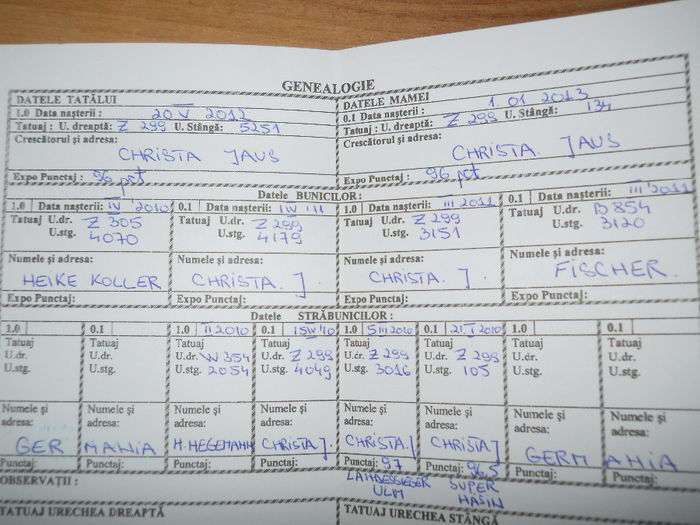 GENEALOGIE
DATELE TATĂLUI
1.0 Data nașterii : 20 V 2012
Tatuaj : U. dreaptă: Z 299 U. Stângă: 5251
Crescătorul și adresa:
CHRISTA JAUS
Expo Punctaj: 96 pct
DATELE MAMEI
0.1 Data nașterii : 1 01 2013
Tatuaj : U. dreaptă: Z 299 U. Stângă: 134
Crescătorul și adresa:
CHRISTA. JAUS
Expo Punctaj: 96 pct
Datele BUNICILOR:
1.0 Data nașterii: IV 2010
Tatuaj U.dr. Z 305
U.stg. 4070
Numele și adresa:
HEIKE KOLLER
Expo Punctaj:
0.1 Data nașterii:
Tatuaj U.dr. Z 299
U.stg. 4179
Numele și adresa:
CHRISTA. J.
Expo Punctaj:
1.0 Data nașterii: III 2011
Tatuaj U.dr. Z 299
U.stg. 3151
Numele și adresa:
CHRISTA. J.
Expo Punctaj:
0.1 Data nașterii: III 2011
Tatuaj U.dr. D 854
U.stg. 3120
Numele și adresa:
FISCHER.
Expo Punctaj:
Datele STRĂBUNICILOR :
1.0 0.1 1.0 II 2010 0.1 15 IV '10 1.0 5 III 2010 0.1 21 I 2010 1.0 0.1
Tatuaj Tatuaj Tatuaj Tatuaj Tatuaj Tatuaj Tatuaj Tatuaj
U.dr. U.dr. U.dr. W 354 U.dr. Z 299 U.dr. Z 299 U.dr. Z 299 U.dr. U.dr.
U.stg. U.stg. U.stg. 2054 U.stg. 4049 U.stg. 3016 U.stg. 105 U.stg. U.stg.
Numele și Numele și Numele și Numele și Numele și Numele și Numele și Numele și
adresa: adresa: adresa: adresa: adresa: adresa: adresa: adresa:
GER MANIA H. HEGEMANN CHRISTA. J. CHRISTA J CHRISTA J GERM ANIA
Punctaj: Punctaj: Punctaj: Punctaj: Punctaj: 97 Punctaj: 96,5 Punctaj: Punctaj:
OBSERVAȚII : LANDESSIEGER SUPER
ULM HASIN
TATUAJ URECHEA DREAPTĂ TATUAJ URECHEA STÂNGĂ